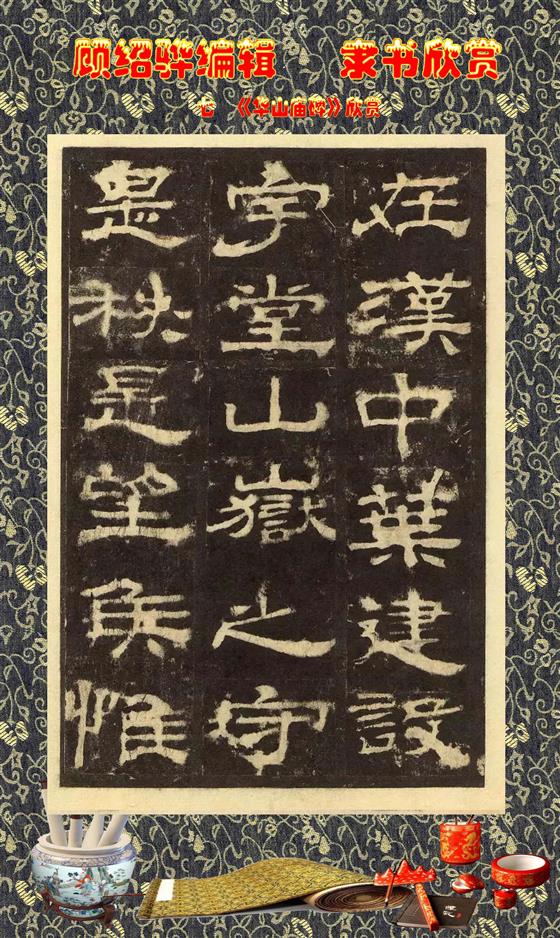 顾绍骅编辑 隶书欣赏
《华山庙碑》欣赏
在漢中葉建設
宇堂山嶽之守
是秩是望侯惟